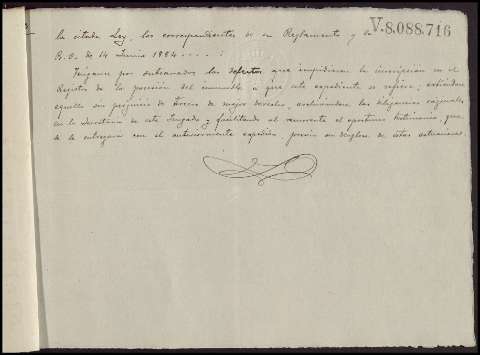 la citada Ley, los correspondientes de su Reglamento y la
V.8.088.716
R. O. de 14 Junio 1884 . . . . :
Ténganse por subsanados los defectos que impidieron la inscripción en el
Registro de la posesión del inmueble a que este expediente se refiere; entiéndase
aquella sin perjuicio de tercero de mejor derecho, archívense las diligencias originales
en la Secretaría de este Juzgado y facilítese al recurrente el oportuno testimonio, que
se le entregará con el anteriormente expedido, previo su desglose de estas actuaciones.